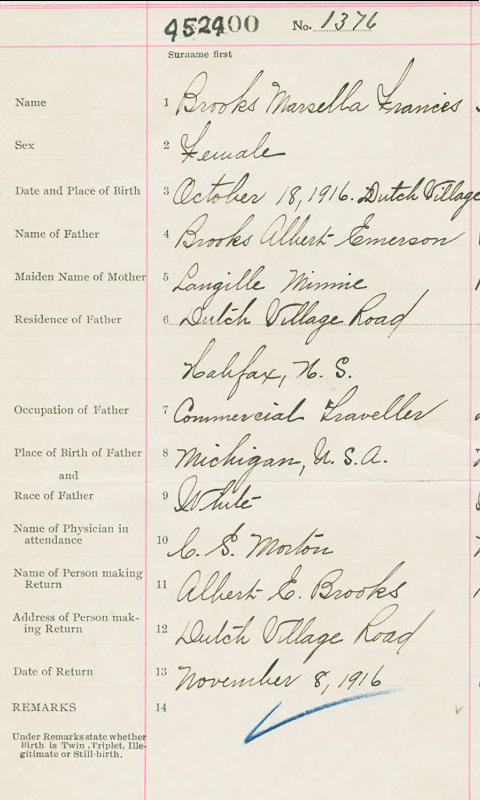 45240 00 No. 1376
Surname first
Name 1 Brooks Marsella Frances
Sex 2 Female
Date and Place of Birth 3 October 18, 1916. Dutch Village
Name of Father 4 Brooks Albert Emerson
Maiden Name of Mother 5 Langille Minnie
Residence of Father 6 Dutch Village Road
Halifax, N. S.
Occupation of Father 7 Commercial Traveller
Place of Birth of Father 8 Michigan, U.S.A.
and
Race of Father 9 White
Name of Physician in
attendance 10 C. S. Morton
Name of Person making
Return 11 Albert E. Brooks
Address of Person mak-
ing Return 12 Dutch Village Road
Date of Return 13 November 8, 1916
REMARKS 14
Under Remarks state whether
Birth is Twin, Triplet, Ille-
gitimate or Still-birth.